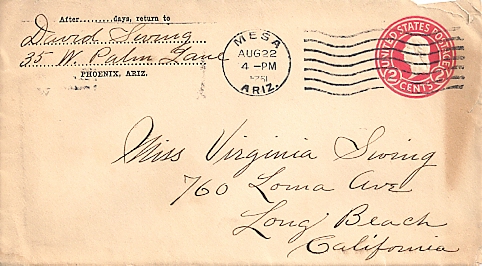 After..........days, return to
David Swing
35 W. Palm Lane
PHOENIX, ARIZ.
MESA
AUG 22
4 - PM
ARIZ.
UNITED STATES POSTAGE
2 CENTS 2
Miss Virginia Swing
760 Loma Ave
Long Beach
California